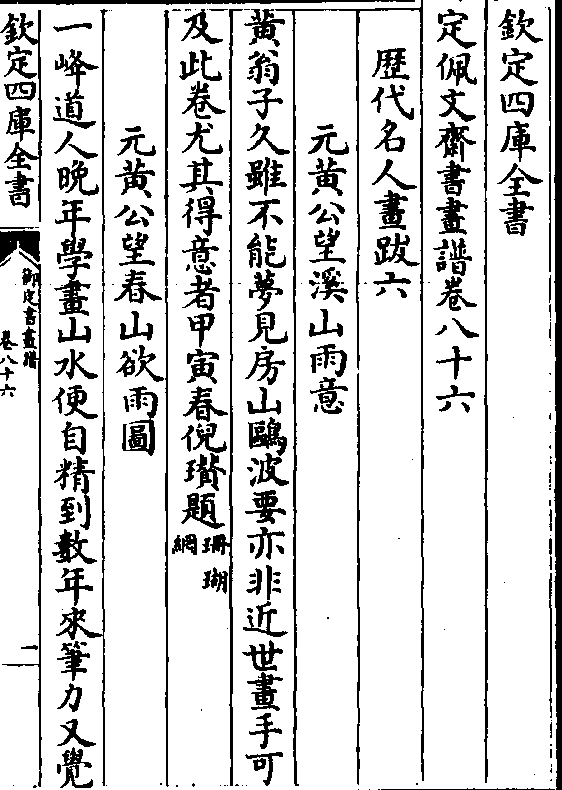 欽定四庫全書
定佩文齋書畫譜卷八十六
歷代名人畫跋六
元黃公望溪山雨意
黃翁子久雖不能夢見房山鷗波要亦非近世畫手可
及此卷尤其得意者甲寅春倪瓚題珊瑚網
元黃公望春山欲雨圖
一峰道人晚年學畫山水便自精到數年來筆力又覺
欽定四庫全書
御定書畫譜
卷八十六
一